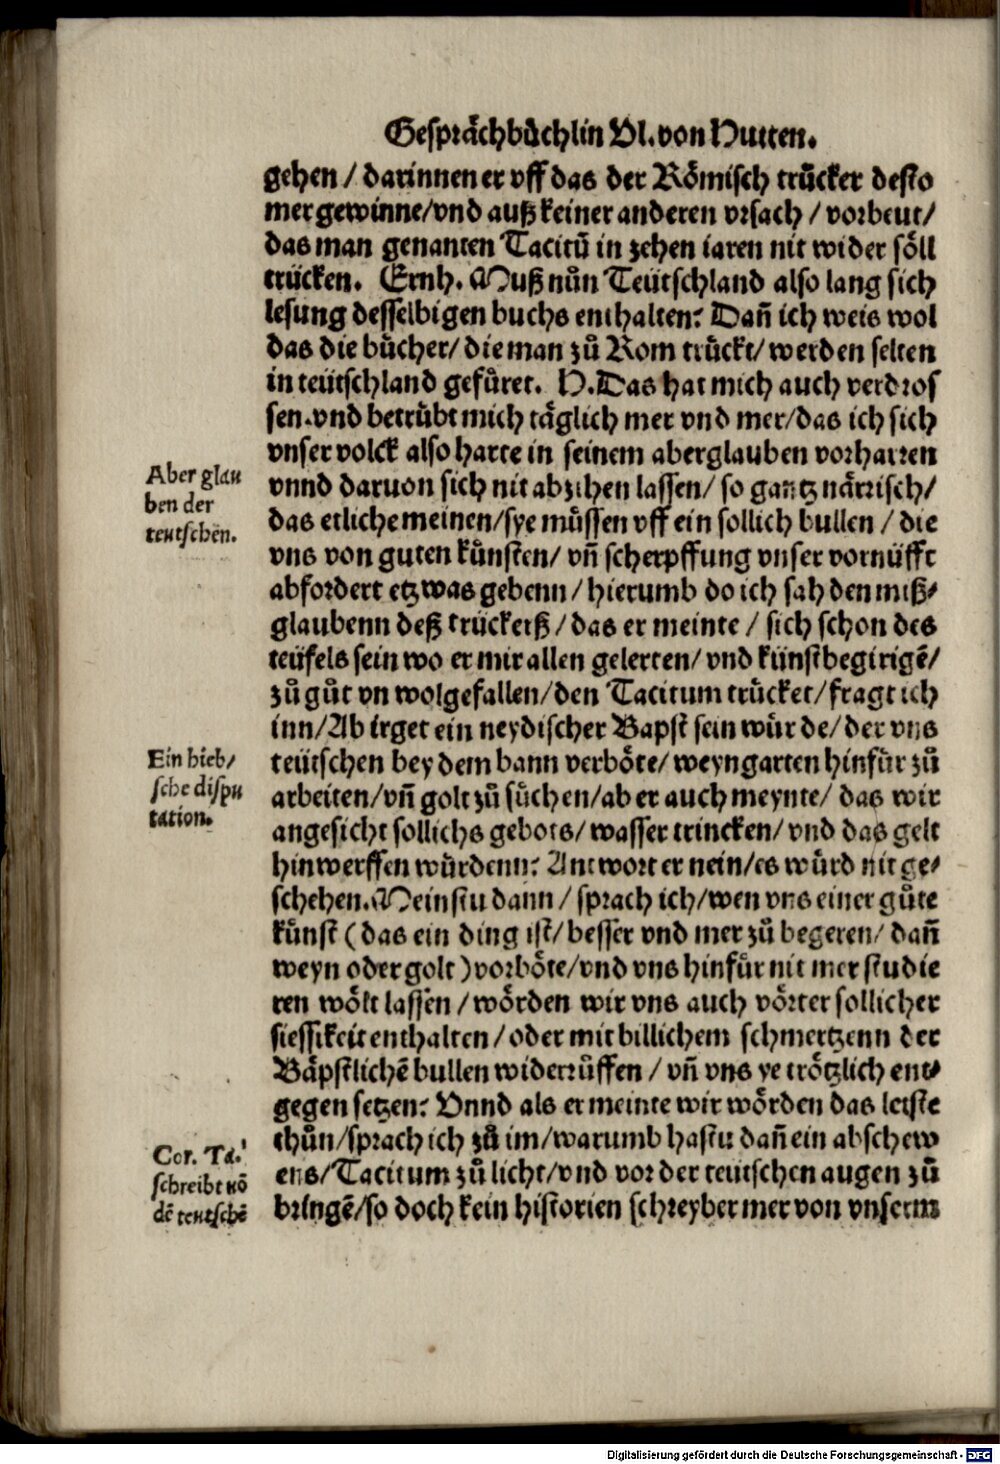 Gesprächbůchlin Vl. von Hutten.
gehen / darinnen er vff das der Römisch trůcker desto
mer gewinne/vnd auß keiner anderen vrsach / vorbeut/
das man genanten Tacitū in zehen iaren nit wider söll
trücken. Ernh. Muß nůn Teütschland also lang sich
lesung desselbigen buchs enthalten? Dañ ich weis wol
das die bůcher/ die man zů Rom trückt/ werden selten
in teütschland gefůret. H. Das hat mich auch verdros
sen. vnd betrůbt mich täglich mer vnd mer/das ich sich
vnser volck also harte in seinem aberglauben vorharren
Aber glau
ben der
teutschen.
vnnd daruon sich nit abzihen lassen/ so gantz närrisch/
das etliche meinen/sye můssen vff ein sollich bullen / die
vns von guten kůnsten/ vñ scherpffung vnser vornüfft
abfordert etzwas gebenn / hierumb do ich sah den miß-
glaubenn deß trückerß / das er meinte / sich schon des
teüfels sein wo er mir allen gelerten/ vnd künstbegirigē/
zů gůt vn wolgefallen/den Tacitum trücket/fragt ich
inn/Ab irget ein neydischer Bapst sein würde/ der vns
Ein hieb/
sche dispu
tation.
teütschen bey dem bann verböte/ weyngarten hinfůr zů
arbeiten/vñ golt zů sůchen/ab er auch meynte/ das wir
angesicht sollichs gebots/ wasser trincken/ vnd das gelt
hinwerffen würdenn? Antwort er nein/es würd nit ge-
schehen. Meinstu dann / sprach ich/wen vns einer gůte
kůnst (das ein ding ist/ besser vnd mer zů begeren/ dañ
weyn oder golt) vorböte/vnd vns hinfůr nit mer studie
ren wölt lassen / wörden wir vns auch vörter sollicher
siessikeit enthalten / oder mit billichem schmertzenn der
Bäpstlichē bullen widerrůffen / vñ vns ye trötzlich ent-
gegen setzen? Vnnd als er meinte wir wörden das letste
Cor. Ta.
schreibt vō
dē teutschē
thůn/sprach ich zů im/warumb hastu dañ ein abschew
ens/Tacitum zů licht/vnd vor der teütschen augen zů
bringē/so doch kein historien schreyber mer von vnserm
Digitalisierung gefördert durch die Deutsche Forschungsgemeinschaft - DFG